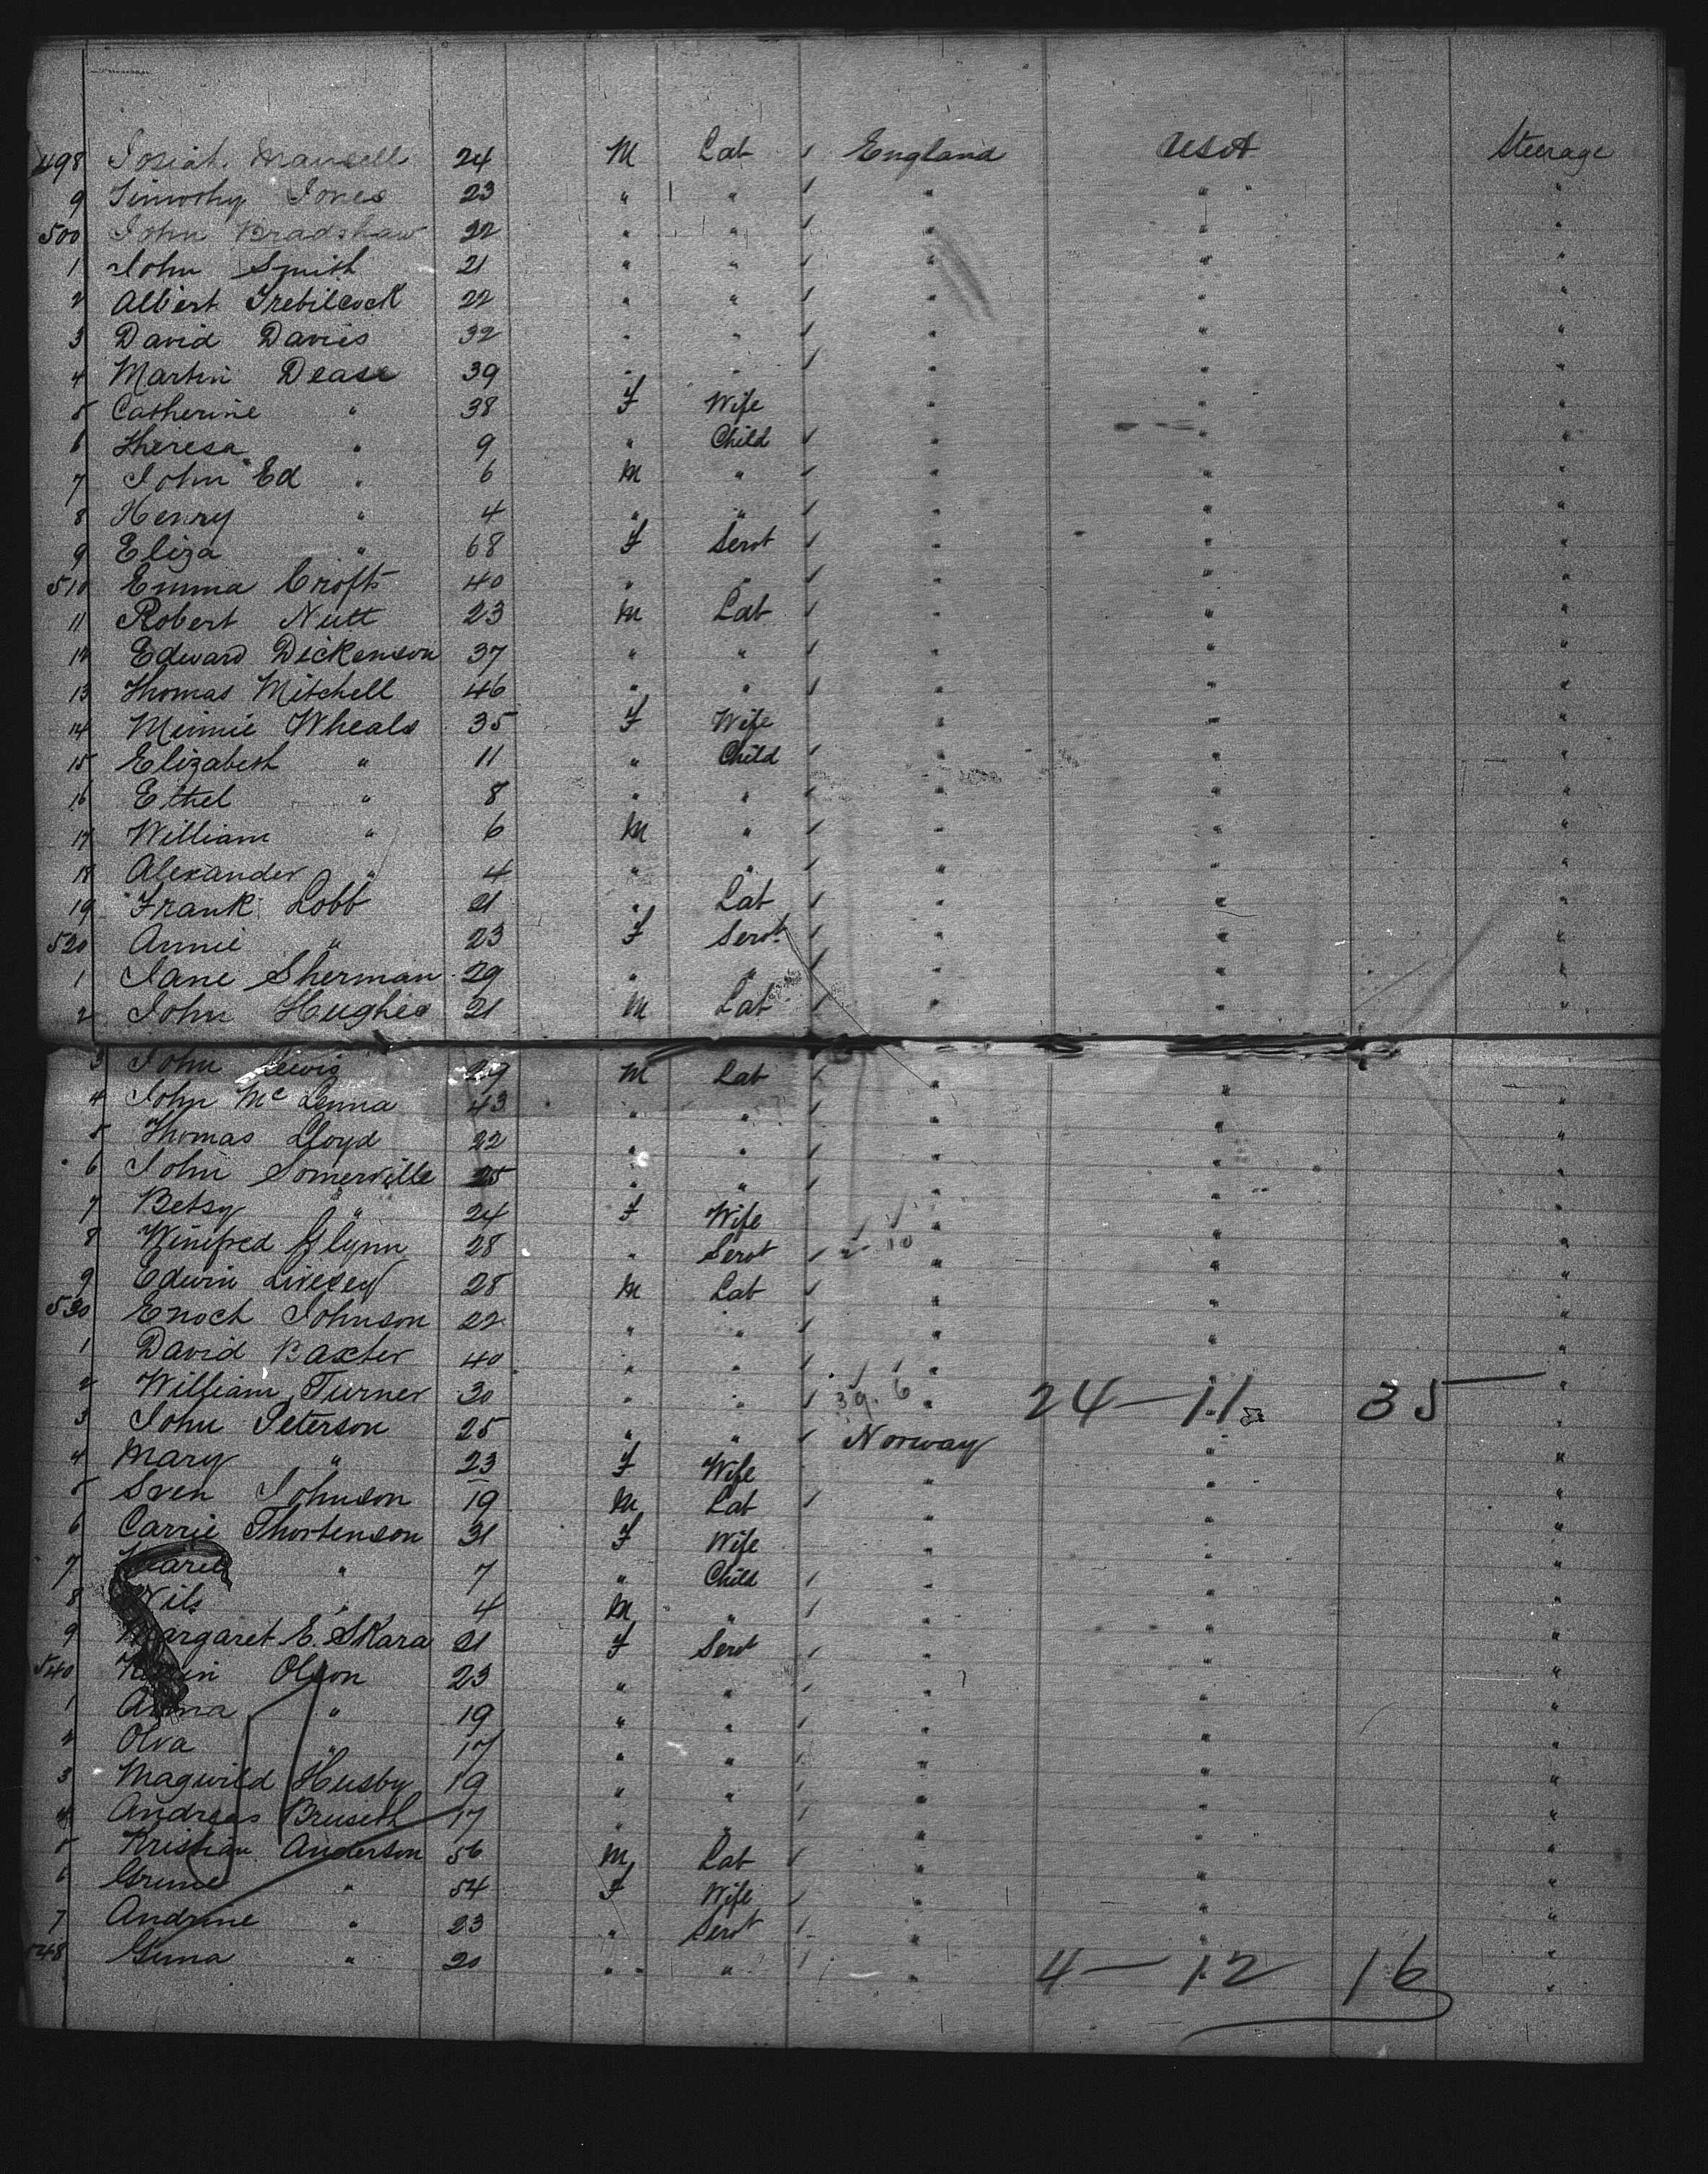 498 Josiah Mansell 24 M Lab ✓ England USA Steerage
9 Timothy Jones 23 " " ✓ " " "
500 John Bradshaw 22 " " ✓ " " "
1 John Smith 21 " " ✓ " " "
2 Albert Trebilcock 22 " " ✓ " " "
3 David Davies 32 " " ✓ " " "
4 Martin Dease 39 " " ✓ " " "
5 Catherine " 38 F Wife " " "
6 Theresa " 9 " Child ✓ " " "
7 John Ed " 6 M " ✓ " " "
8 Henry " 4 " " ✓ " " "
9 Eliza " 68 F Servt ✓ " " "
510 Emma Crofts 40 " " ✓ " " "
11 Robert Nutt 23 M Lab ✓ " " "
12 Edward Dickenson 37 " " ✓ " " "
13 Thomas Mitchell 46 " " ✓ " " "
14 Minnie Wheals 35 F Wife " " "
15 Elizabeth " 11 " Child ✓ " " "
16 Ethel " 8 " " ✓ " " "
17 William " 6 M " ✓ " " "
18 Alexander " 4 " " ✓ " " "
19 Frank Lobb 21 " Lab ✓ " " "
520 Annie " 23 F Servt ✓ " " "
1 Jane Sherman 29 " " ✓ " " "
2 John Hughes 21 M Lab ✓ " " "
3 John Lewis 29 M Lab ✓ " " "
4 John McLenna 43 " " ✓ " " "
5 Thomas Lloyd 22 " " ✓ " " "
6 John Somerville 25 " " ✓ " " "
7 Betsy " 24 F Wife " " "
8 Winifred Glynn 28 " Servt ✓ 2 10 " " "
9 Edwin Livesey 28 M Lab ✓ " " "
530 Enoch Johnson 22 " " ✓ " " "
1 David Baxter 40 " " ✓ " " "
2 William Turner 30 " " ✓ 39. 6 " 24 — 11 35 "
3 John Peterson 25 " " ✓ Norway " "
4 Mary " 23 F Wife " " "
5 Sven Johnson 19 M Lab ✓ " " "
6 Carrie Thortenson 31 F Wife " " "
7 " 7 " Child ✓ " " "
8 Nils " 4 M " ✓ " " "
9 Margaret E. Skara 21 F Servt ✓ " " "
540 Olson 23 " " ✓ " " "
1 Anna " 19 " " ✓ " " "
2 Olva " 17 " " ✓ " " "
3 Magwild Husby 19 " " ✓ " " "
4 Andreas Bruseth 17 " " ✓ " " "
5 Kristian Anderson 56 M Lab ✓ " " "
6 " 54 F Wife ✓ " " "
7 Andrine " 23 " Servt ✓ " " "
548 " 20 " " ✓ " 4 — 12 16 "